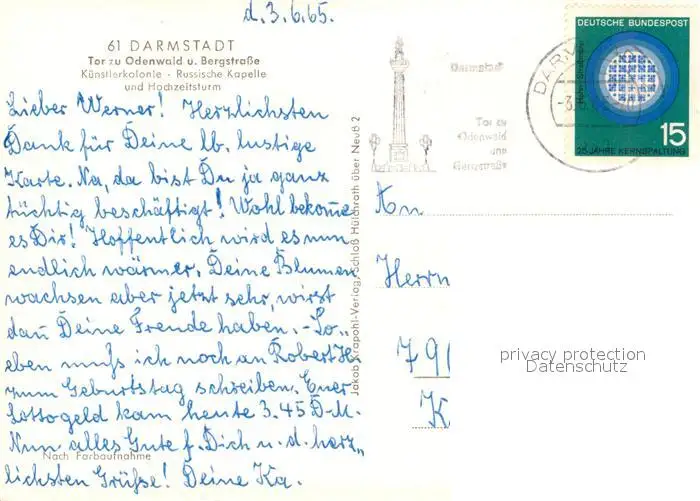 d. 3.6.65.
61 DARMSTADT
Tor zu Odenwald u. Bergstraße
Künstlerkolonie - Russische Kapelle
und Hochzeitsturm
Lieber Werner! Herzlichsten
Dank für Deine lb. lustige
Karte. Na, da bist Du ja ganz
tüchtig beschäftigt! Wohl bekomme
es Dir! Hoffentlich wird es nun
endlich wärmer. Deine Blumen
wachsen aber jetzt sehr, wirst
dan Deine Freude haben. - So„
eben muß ich noch an Robert H.
zum Geburtstag schreiben. Euer
Lottogeld kam heute 3.45 D-M.
Nun alles Gute f. Dich u. d. herz„
lichsten Grüße! Deine Ka.
Nach Farbaufnahme
Jakob Krapohl-Verlag, Schloß Hülchrath über Neuß 2
Darmstadt
Tor zu
Odenwald
und
Bergstraße
DARM
-3.6.
DEUTSCHE BUNDESPOST
15
25 JAHRE KERNSPALTUNG
An
Herrn
791
K
privacy protection
Datenschutz